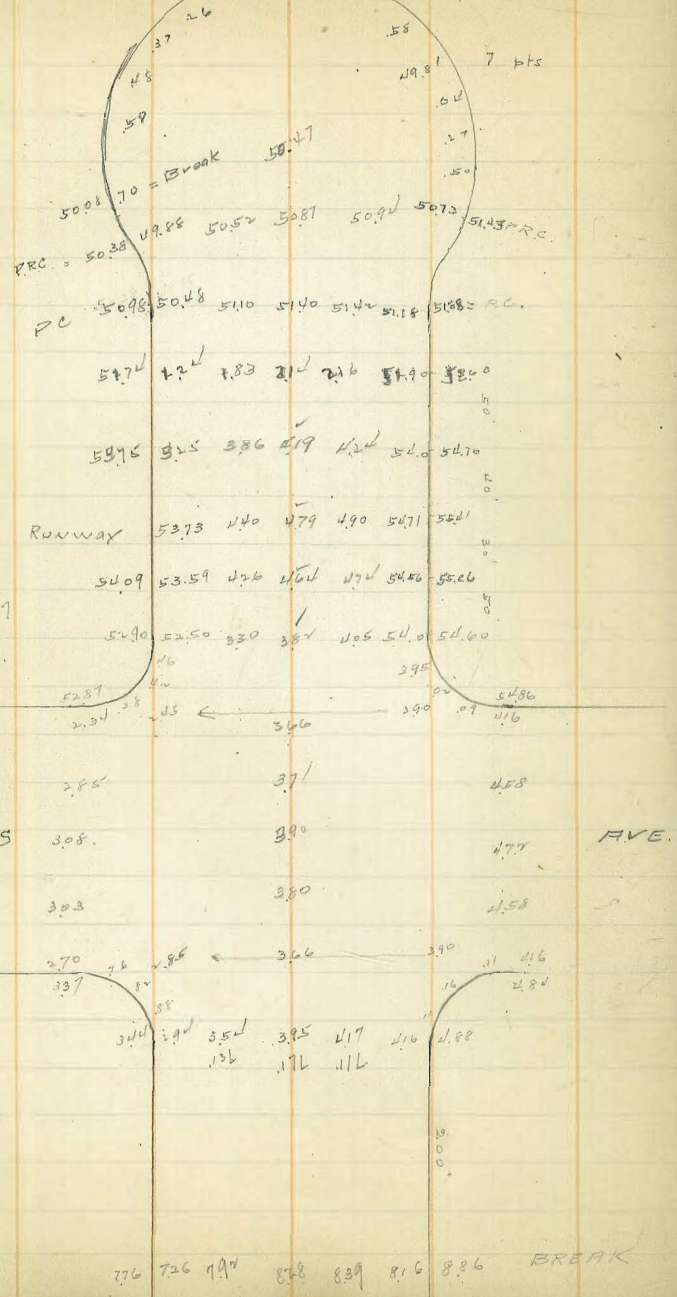 .26
.37 .58
.48 49.81 7 pts
.59 .04
.27
50.47
.70 = Break .50
50.08
49.88 50.52 50.87 50.92 50.73 51.43 P.R.C.
P.R.C. = 50.38
P.C. 50.98 50.48 51.10 51.40 51.42 51.18 51.88 = P.C.
1.83 2.16
50.
53.75 3.25 3.86 4.19 4.24 54.0 54.70
Runway 53.73 4.40 4.79 4.90 54.71 55.41
30.
54.09 53.59 4.26 4.64 4.74 54.56 55.26
50.
52.90 52.50 3.30 3.82 4.05 54.0 54.60
.46 3.95
.42 .02
52.87 54.86
2.34 .28 2.45 3.66 3.90 .09 4.16
2.85 3.71 4.58
S 3.08 3.90 4.72 AVE.
3.03 3.80 4.58
2.70 .76 2.85 3.66 3.90 .11 4.16
3.37 .82 .16 4.84
.88 .11
3.44 2.94 3.54 3.95 4.17 4.16 4.88
.13L .17L .11L
200.
7.76 7.26 7.92 8.28 8.39 8.16 8.86 BREAK